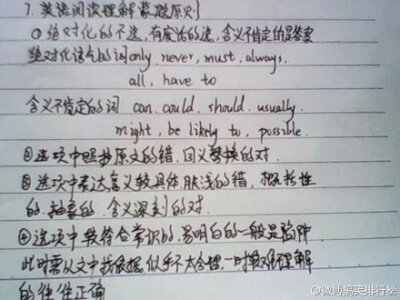 7. 英语阅读理解蒙题原则
① 绝对化的不选,有废话的选,含义不肯定的是答案
绝对化语气的词only, never, must, always.
all, have to
含义不肯定的词 can, could, should, usually.
might, be likely to, possible.
② 选项中照抄原文的错,同义替换的对.
③ 选项中表达意义较具体,肤浅的错,概括性
的,抽象的,含义深刻的对.
④ 选项中较符合常识的,易明白的一般是陷阱
此时需从文中找依据,似乎不太合理,一时较难理解
的往往正确
@微博搞笑排行榜